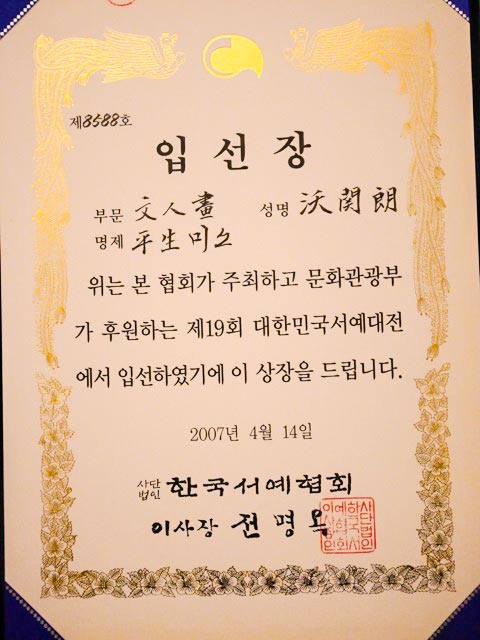 제8588호
입선장
부문 文人畫 성명 沃関朗
명제 平生미소
위는 본 협회가 주최하고 문화관광부
가 후원하는 제19회 대한민국서예대전
에서 입선하였기에 이 상장을 드립니다.
2007년 4월 14일
사단법인 한국서예협회
이사장 전명옥